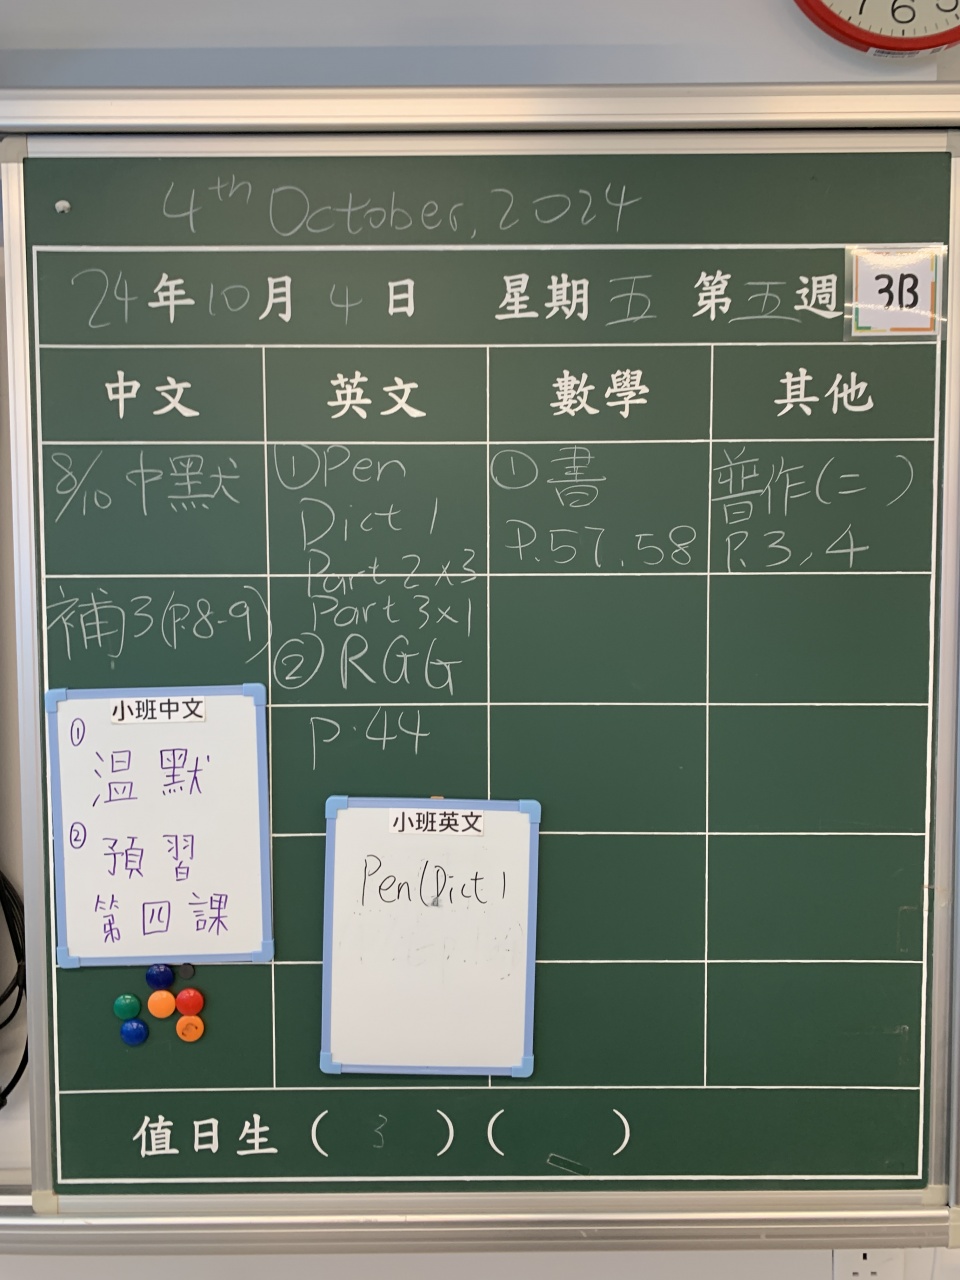 7 6 5
4th October, 2024
24年10月4日 星期五 第五週 3B
中文 英文 數學 其他
8/10 中默
補3(P.8-9)
①Pen
Dict 1
Part 2 x3
Part 3x1
②RGG
p.44
①書
P.57,58
普作(二)
P.3,4
小班中文
①
溫默
②
預習
第四課
小班英文
Pen(Dict 1
值日生( 3 )( )